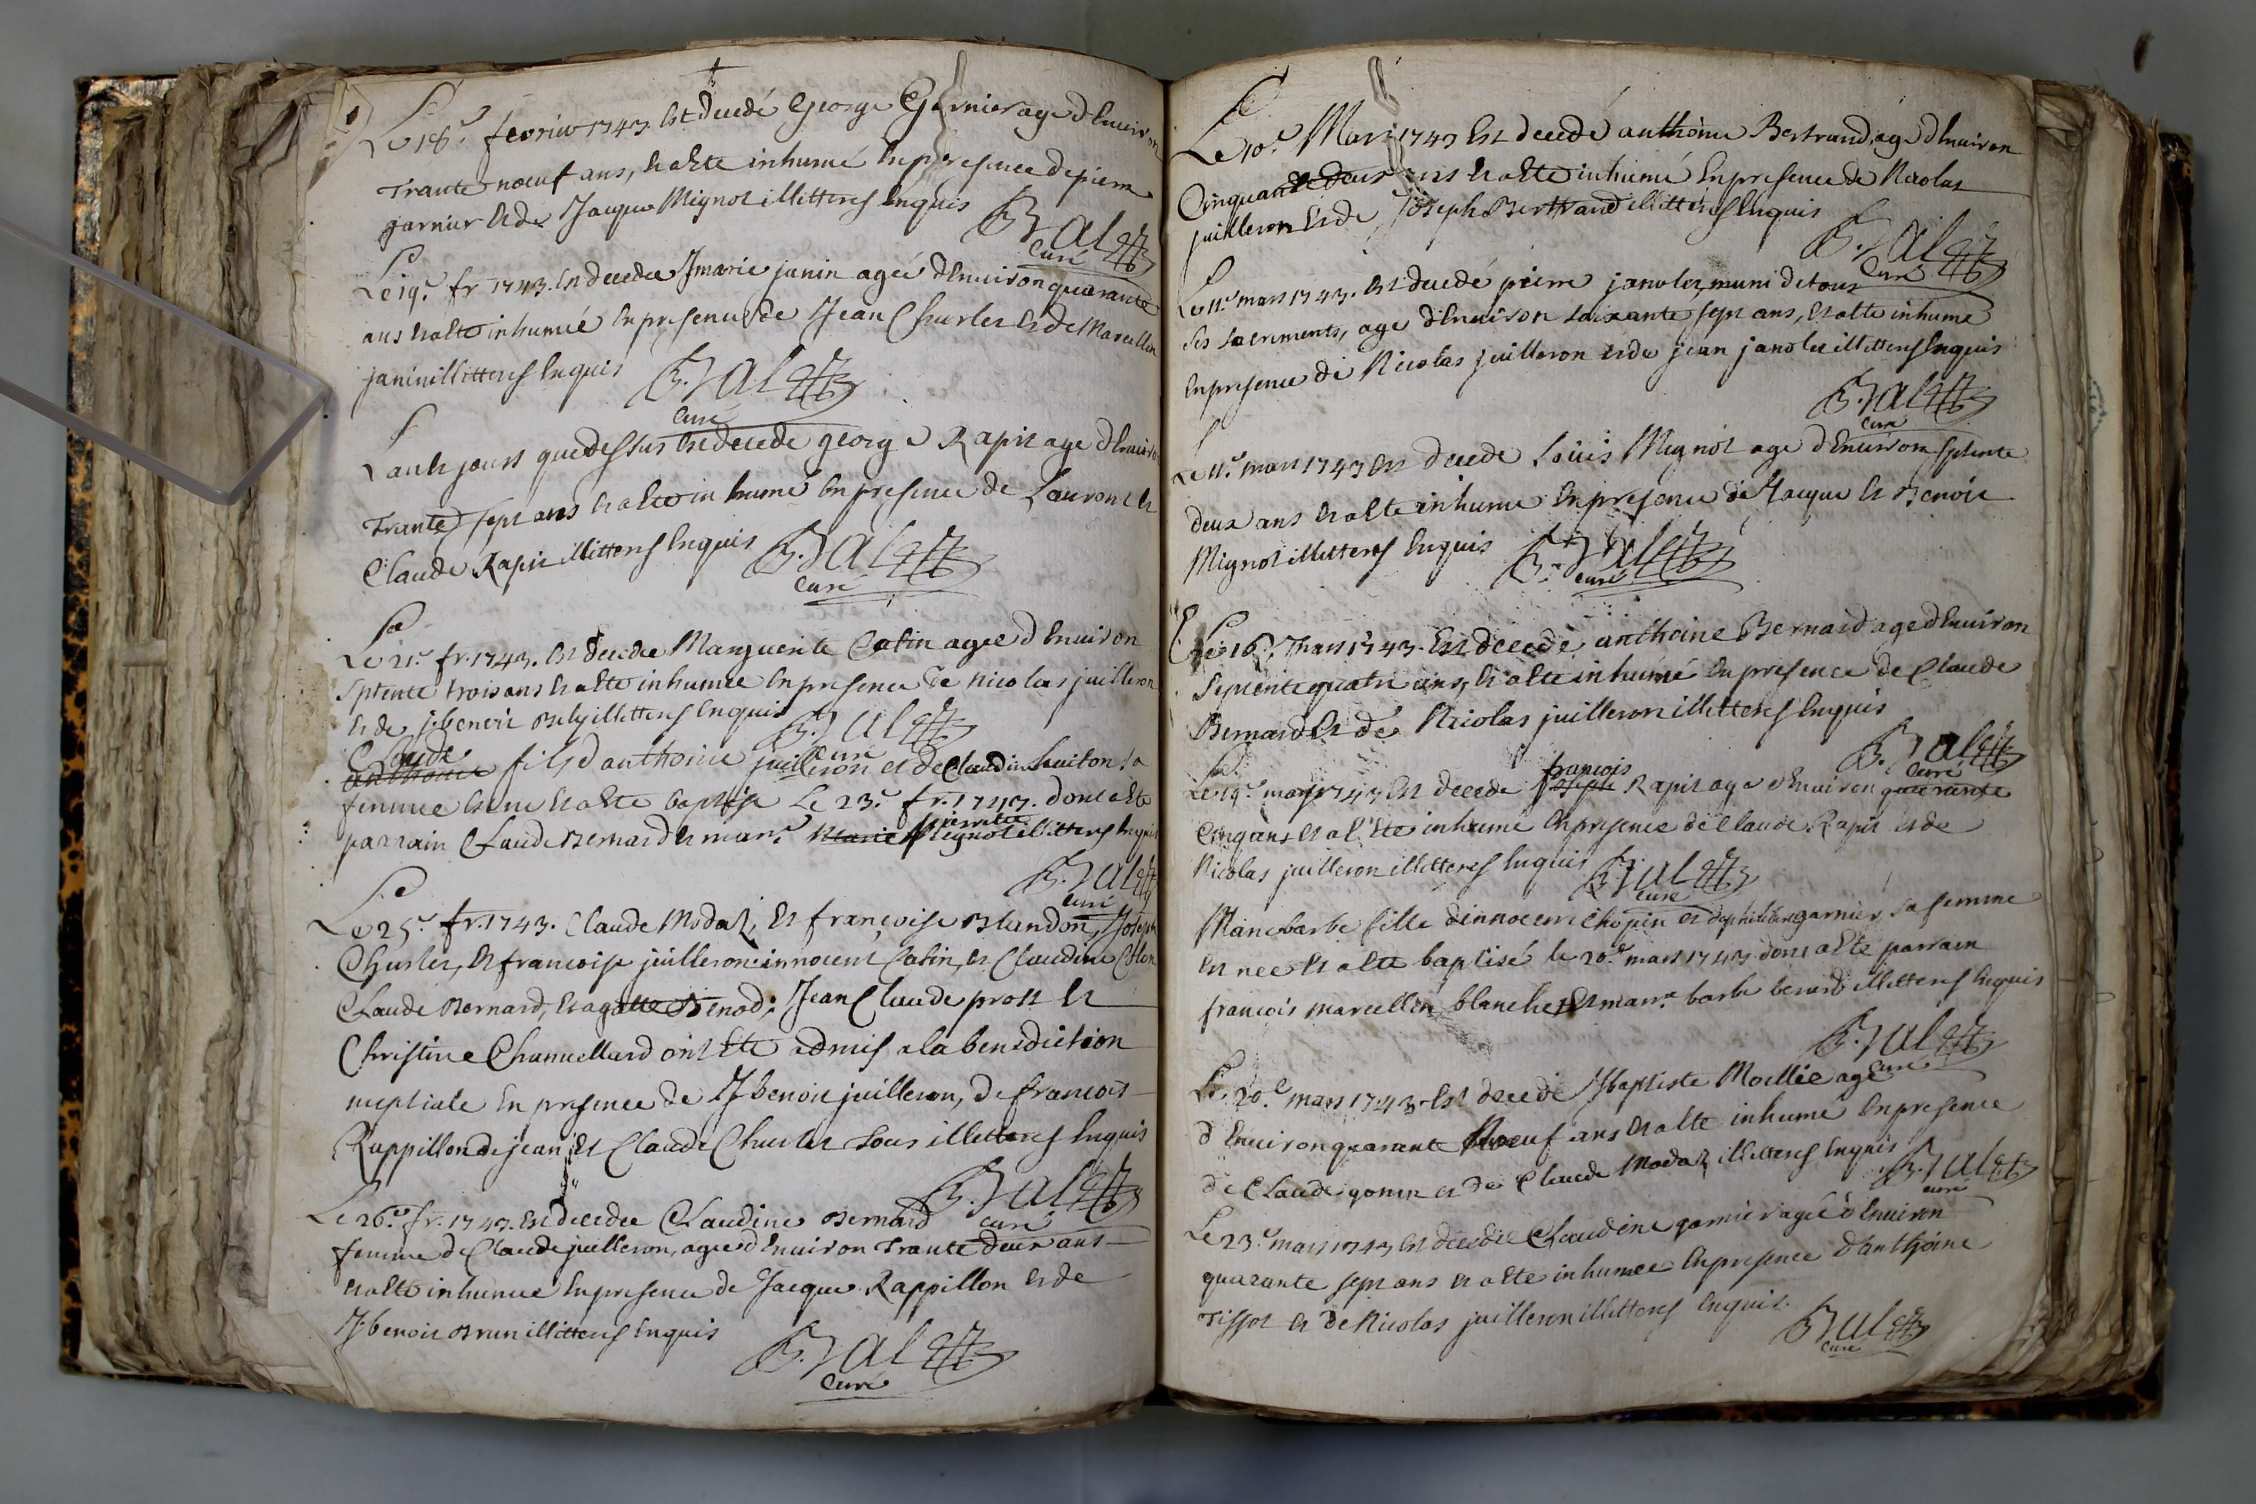 Le 18e fevrier 1743 Est decedé George Garnier age d'Environ
Trante nœuf ans, Et a Ete inhumé En presence de pierre
garnier Et de Jacque Mignot illitterés Enquis
B. Valett
Curé
Le 19e fr 1743. Est decedee J marie janin ageé d'Environ quarante
ans Et a Ete inhumeé En presence de Jean Churlet Et de Marcellin
janin illitterés Enquis
B. Valett
Curé
L'an Et jours que dessus Est decede george Rapit age d'Environ
Trante sept ans Et a Ete in humé En presence de Laurent Et
Claude Rapit illitterés Enquis
B. Valett
Curé
Le 21e fr. 1743. Est decedee Marguerite Catin agee d'Environ
Septente trois ans Et a Ete inhumee En presence de nicolas juilleron
Et de j benoit illitterés Enquis
B. Valett
Curé
Claude
anthoine fils d'anthoine juilleron et de Claudine sa
femme Est ne Et a Ete baptise Le 23e fr. 1743. dont a Ete
pierrette
parrain Claude Bernard Et marr.e Marie Mignot illitterés Enquis
B. Valett
Curé
Le 25e fr. 1743. Claude Modas, Et françoise Blandon, Joseph
Churlet, Et francoise juilleron innocent Catin, Et Claudine
Claude Bernard, Et agatte Benod, Jean Claude prost Et
Christine Chamellard ont Ete admis a la benediction
nuptiale En presence de J benoit juilleron, de francois
Rappillon de jean Et Claude Churlet tous illitterés Enquis
B. Valett
Curé
Le 26e fr. 1743. Est decedee Claudine Bernard
femme de Claude juilleron, agee d'Environ Trante deux ans
Et a Ete inhumee En presence de Jacque Rappillon Et de
J benoit Brun illitterés Enquis
B. Valett
Curé
Le 10e Mars 1743 Est decedé anthoine Bertrand, age d'Environ
Cinquante deux ans Et a Ete inhumé En presence de Nicolas
juilleron Et de Joseph Bertrand illitterés Enquis
B. Valett
Curé
Le 11e mars 1743. Est decedé pierre janolet, muni de tous
ses sacrements, age d'Environ soixante sept ans, Et a Ete inhumé
En presence de Nicolas juilleron Et de jean janolet illitterés Enquis
B. Valett
Curé
Le 11e mars 1743 Est decede Loüis Mignot age d'Environ septente
deux ans Et a Ete inhume En presence de Jacque Et Benoit
Mignot illitterés Enquis
B. Valett
Curé
Le 16e Mars 1743. Est decede anthoine Bernard age d'Environ
Septente quatre ans, Et a Ete inhumé En presence de Claude
Bernard Et de Nicolas juilleron illitterés Enquis
B. Valett
Curé
françois
Le 19e mars 1743 Est decede Joseph Rapit age d'Environ quarante
Cinq ans Et a Ete inhumé En presence de Claude Rapit Et de
Nicolas juilleron illitterés Enquis
B. Valett
Curé
Marie barbe fille d'innocent Chopin et de philiberte garnier, sa femme
Est nee Et a Ete baptisé le 20e mars 1743 dont a Ete parrain
francois marcellin blanchet Et marr.e barbe berard illitterés Enquis
B. Valett
Curé
Le 20e mars 1743 Est decedé J baptiste Moellée age
d'Environ quarante Nœuf ans Et a Ete inhumé En presence
de Claude gonin et de Claude Modas illitterés Enquis
B. Valett
curé
Le 23e mars 1743 Est decedée Claudine garnier ageé d'Environ
quarante sept ans Et a Ete inhumee En presence d'anthoine
Tissot Et de Nicolas juilleron illitterés Enquis.
B. Valett
Curé